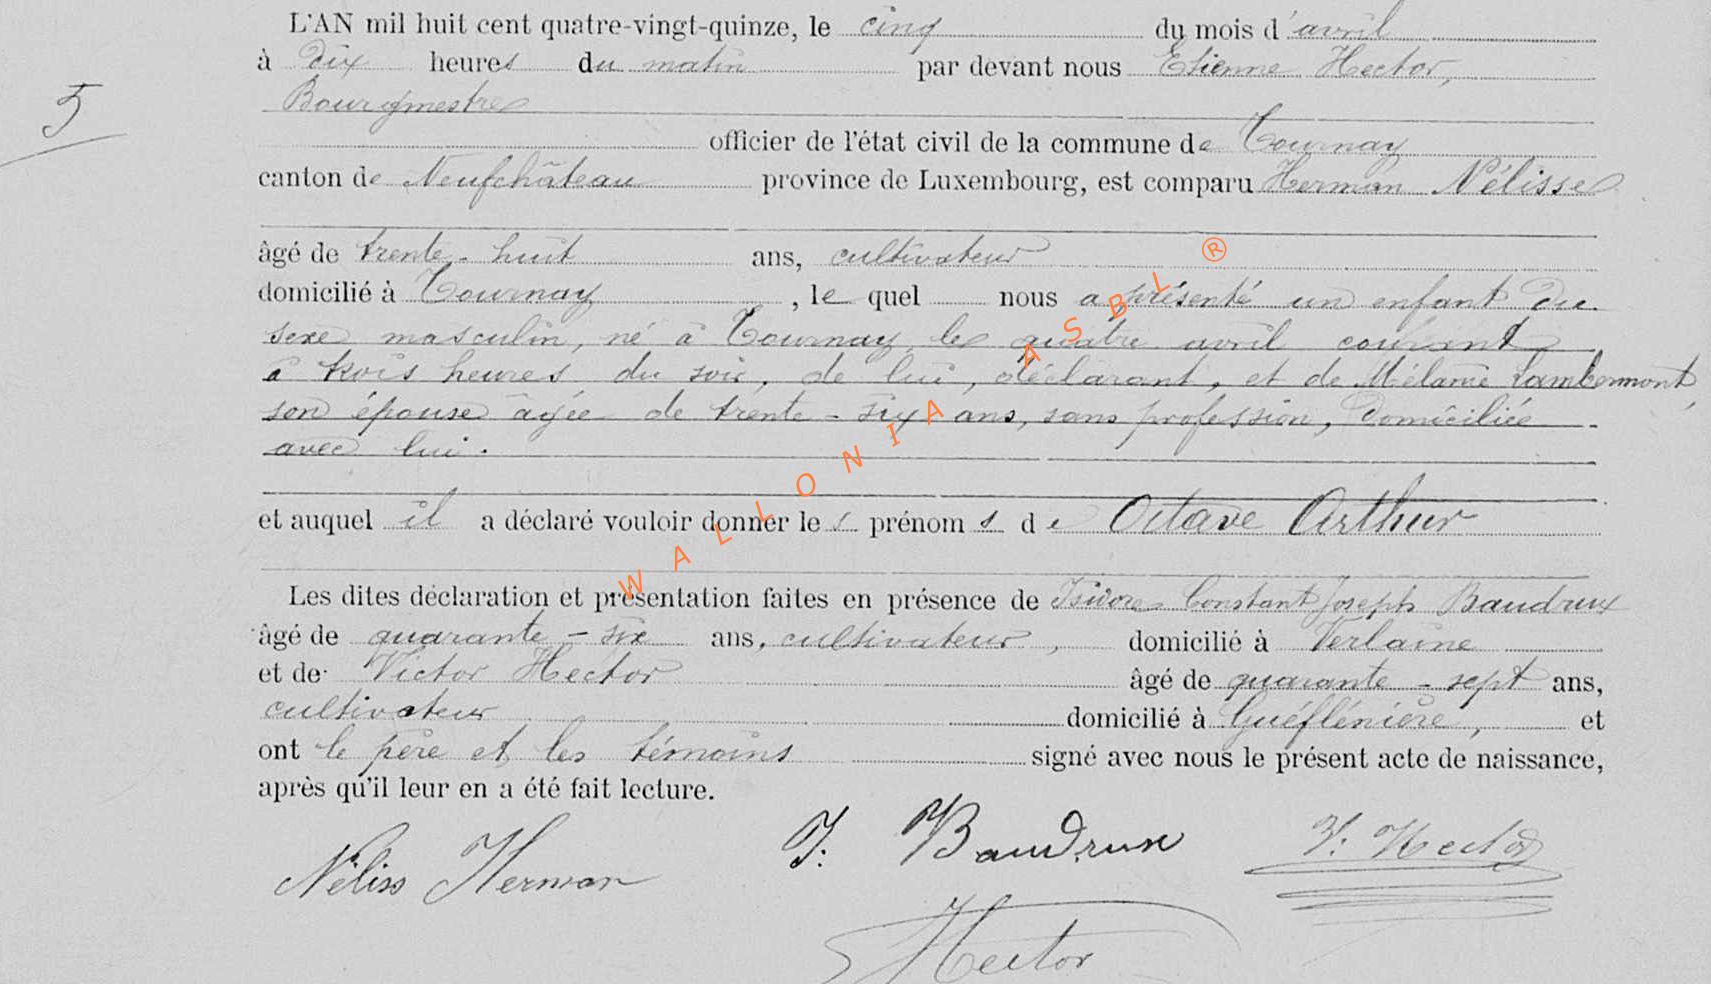 L'AN mil huit cent quatre-vingt-quinze, le cinq du mois d'avril
à dix heures du matin par devant nous Etienne Hector,
Bourgmestre
5
officier de l'état civil de la commune de Tournay
canton de Neufchâteau province de Luxembourg, est comparu Herman Nélisse
âgé de trente-huit ans, cultivateur
domicilié à Tournay, lequel nous a présenté un enfant du
sexe masculin, né à Tournay le quatre avril courant
à trois heures du soir, de lui, déclarant, et de Mélanie Lambermont,
son épouse âgée de trente-six ans, sans profession, domiciliée
avec lui.
et auquel il a déclaré vouloir donner les prénoms de Octave Arthur
Les dites déclaration et présentation faites en présence de Isidore Constant Joseph Baudrux
âgé de quarante-six ans, cultivateur, domicilié à Verlaine
et de Victor Hector âgé de quarante-sept ans,
cultivateur domicilié à Guéflénière, et
ont le père et les témoins signé avec nous le présent acte de naissance,
après qu'il leur en a été fait lecture.
Néliss Herman J: Baudrux V. Hector
Hector
WALLONIA ASBL ®